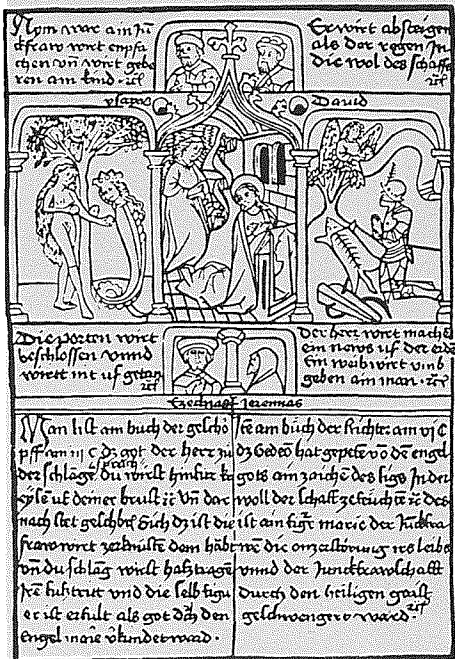 Nym war ain Jũ
kfraw wirt enpfa
chen vñ wirt gebe
ren ain kind · ꝛcꝉ
Er wirt absteigen
als der regen Jn
die wol des schaffs
ꝛcꝉ
ysayas
David
Die porten wirt
beschlossen vnnd
wirtt nit uf getan
ꝛcꝉ
der herr wirt mache
ein news uf der erde
Ein weib wirt vmb
geben ain man · ꝛcꝉ
Ezechiel Jeremias
Man list am buch der geschö
pff am iij C dz got der herr zu
der schlãge sprach du wirst hinfur
deiner brust ꝛc vñ dar
nach stet Sich dz ist die
fraw wirt dem haubt
vñ du schlang wirst
vnd die selb figu
er ist erfult als got dch den
Engel marie vkundet ward ·
am buch der Richter am vj C
dz Gedeõ hat gepetẽ võ dẽ engel
gots ain zaichẽ des sigs Jn der
woll der schaff ꝛc des
ist ain figur marie der Junckfra
wẽ die on zerstörung irs leibs
vnnd der Junckfrawschafft
durch den heiligen gaist
geschwengert ward · ꝛcꝉ